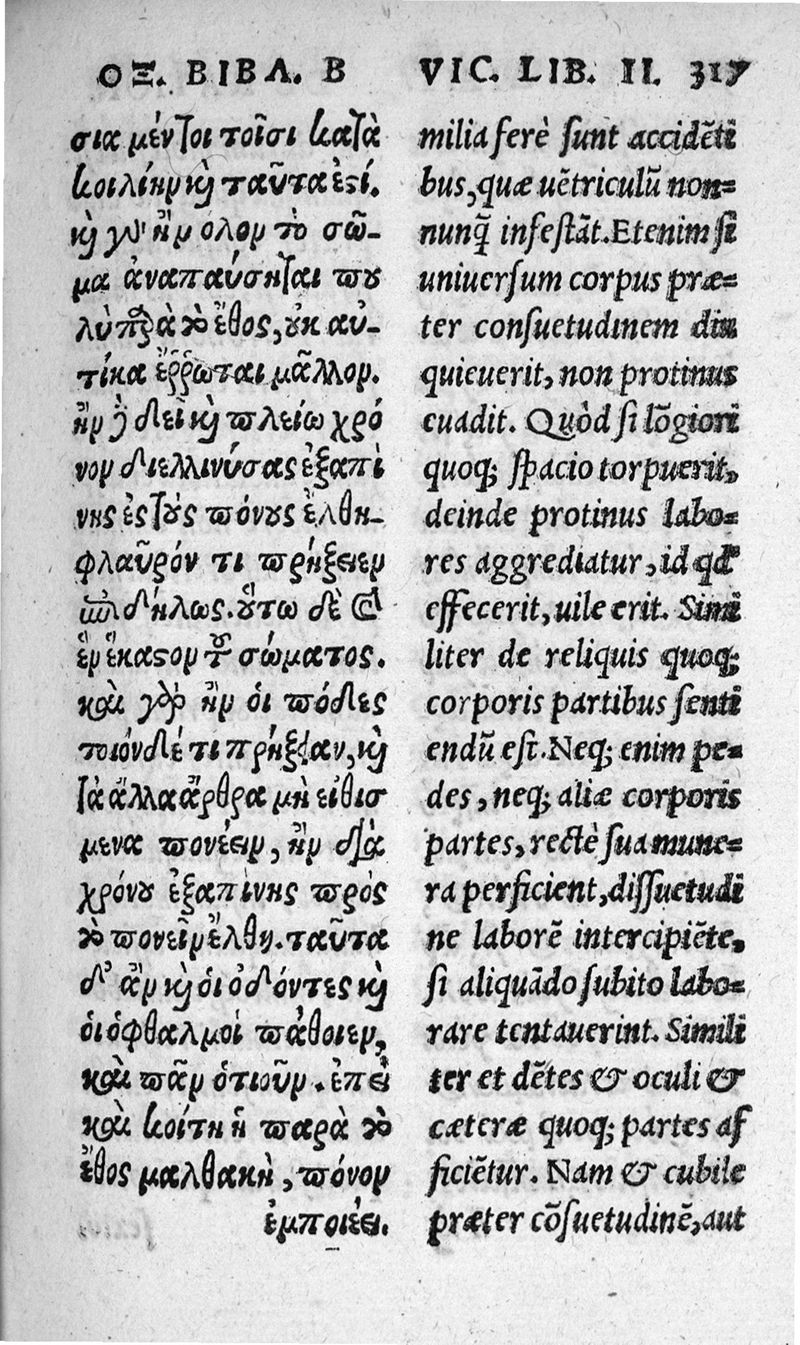 ΟΞ. ΒΙΒΛ. Β
σια μέντοι τοῖσι κατὰ
κοιλίην καὶ ταῦτα ἐστί.
καὶ γὰρ ἢν ὅλον τὸ σῶ-
μα ἀναπαύσηται που
λὺ παρὰ τὸ ἔθος, οὐκ αὐ-
τίκα ἔῤῥωται μᾶλλον.
ἢν δὲ δεῖ καὶ πλείω χρό
νον διελλινύσας ἐξαπί
νης ἐς τοὺς πόνους ἔλθη-
φλαῦρόν τι πρήξειεν
δήλως. οὕτω δὲ καὶ
ἓν ἕκαστον τοῦ σώματος.
καὶ γὰρ ἢν οἱ πόδες
τοιόνδέ τι πρήξαιαν, καὶ
τὰ ἄλλα ἄρθρα μὴ εἰθισ
μενα πονέειν, ἢν διὰ
χρόνου ἐξαπίνης πρὸς
τὸ πονεῖν ἔλθῃ. ταῦτα
δ' ἂν καὶ οἱ ὀδόντες καὶ
οἱ ὀφθαλμοὶ πάθοιεν,
καὶ πᾶν ὁτιοῦν. ἐπεὶ
καὶ κοίτη ἡ παρὰ τὸ
ἔθος μαλθακὴ, πόνον
ἐμποιέει.
VIC. LIB. II. 317
milia ferè sunt accidẽti
bus, quæ uẽtriculũ non=
nunq̃ infestãt. Etenim si
uniuersum corpus præ=
ter consuetudinem diu
quieuerit, non protinus
euadit. Quòd si lõgiori
quoq; spacio torpuerit,
deinde protinus labo=
res aggrediatur, id qd
effecerit, uile erit. Simi
liter de reliquis quoq;
corporis partibus senti
endũ est. Neq; enim pe=
des, neq; aliæ corporis
partes, rectè sua mune=
ra perficient, dissuetudi
ne laborẽ intercipiẽte,
si aliquãdo subito labo=
rare tentauerint. Simili
ter et dẽtes & oculi &
cæteræ quoq; partes af
ficiẽtur. Nam & cubile
præter cõsuetudinẽ, aut